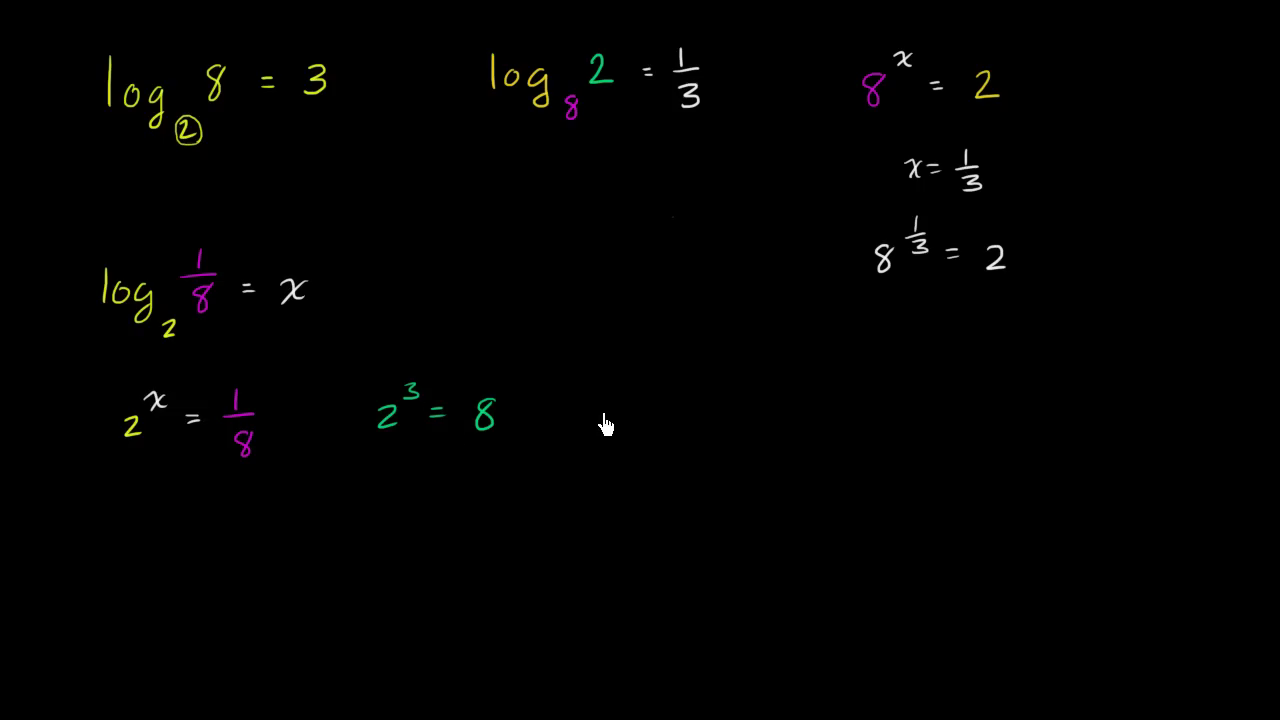 log₂ 8 = 3
log₈ 2 = 1/3
8ˣ = 2
x = 1/3
8^(1/3) = 2
log₂ 1/8 = x
2ˣ = 1/8
2³ = 8